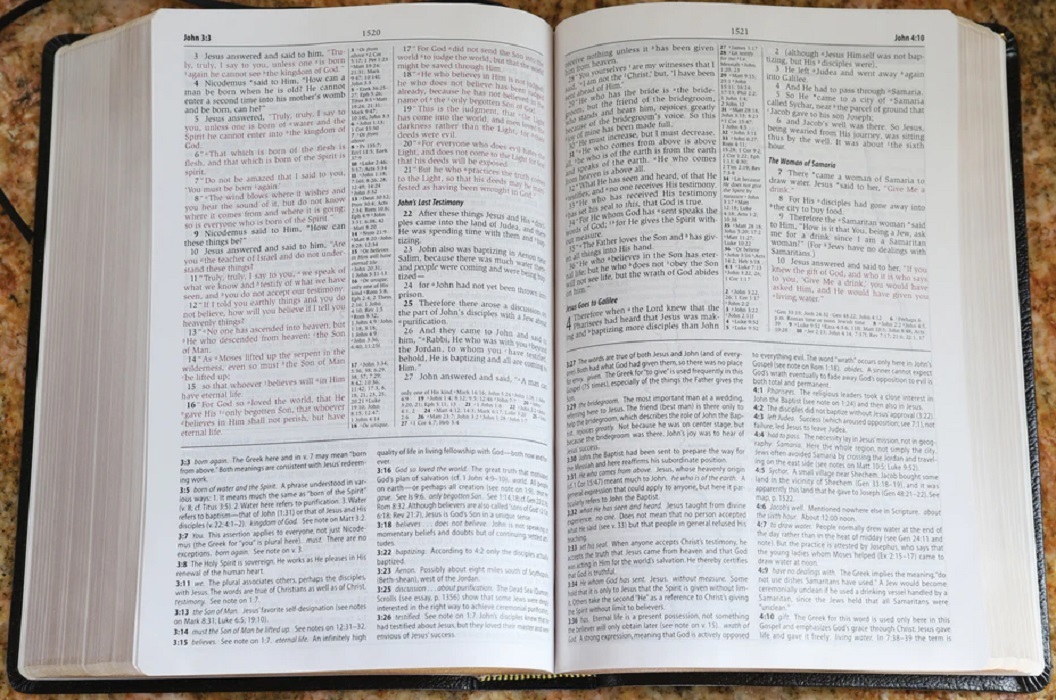 John 3:3
1520
3 Jesus answered and said to him, "Tru-
ly, truly, I say to you, unless one is born
again he cannot see the kingdom of God."
4 Nicodemus said to Him, "How can a
man be born when he is old? He cannot
enter a second time into his mother's womb
and be born, can he?"
5 Jesus answered, "Truly, truly, I say to
you, unless one is born of water and the
Spirit he cannot enter into the kingdom of
God.
6 "That which is born of the flesh is
flesh, and that which is born of the Spirit is
spirit.
7 "Do not be amazed that I said to you,
'You must be born again.'
8 "The wind blows where it wishes and
you hear the sound of it, but do not know
where it comes from and where it is going;
so is everyone who is born of the Spirit."
9 Nicodemus said to Him, "How can
these things be?"
10 Jesus answered and said to him, "Are
you the teacher of Israel and do not under-
stand these things?
11 "Truly, truly, I say to you, we speak of
what we know and testify of what we have
seen, and you do not accept our testimony.
12 "If I told you earthly things and you do
not believe, how will you believe if I tell you
heavenly things?
13 "No one has ascended into heaven, but
He who descended from heaven: the Son
of Man.
14 "As Moses lifted up the serpent in the
wilderness, even so must the Son of Man
be lifted up;
15 so that whoever believes will in Him
have eternal life.
16 "For God so loved the world, that He
gave His only begotten Son, that whoever
believes in Him shall not perish, but have
eternal life.
17 "For God did not send the Son into the
world to judge the world, but that the world
might be saved through Him.
18 "He who believes in Him is not judged;
he who does not believe has been judged
already, because he has not believed in the
name of the only begotten Son of God.
19 "This is the judgment, that the Light
has come into the world, and men loved the
darkness rather than the Light, for their
deeds were evil.
20 "For everyone who does evil hates the
Light, and does not come to the Light for fear
that his deeds will be exposed.
21 "But he who practices the truth comes
to the Light, so that his deeds may be mani-
fested as having been wrought in God."
John's Last Testimony
22 After these things Jesus and His disci-
ples came into the land of Judea, and there
He was spending time with them and bap-
tizing.
23 John also was baptizing in Aenon near
Salim, because there was much water there;
and people were coming and were being bap-
tized—
24 for John had not yet been thrown into
prison.
25 Therefore there arose a discussion on
the part of John's disciples with a Jew about
purification.
26 And they came to John and said to
him, "Rabbi, He who was with you beyond
the Jordan, to whom you have testified,
behold, He is baptizing and all are coming to
Him."
27 John answered and said, "A man can
3:3 born again. The Greek here and in v. 7 may mean "born
from above." Both meanings are consistent with Jesus' redeem-
ing work.
3:5 born of water and the Spirit. A phrase understood in var-
ious ways: 1. It means much the same as "born of the Spirit"
(v. 8; cf. Titus 3:5). 2. Water here refers to purification. 3. Water
refers to baptism—that of John (1:31) or that of Jesus and His
disciples (v. 22; 4:1–2). kingdom of God. See note on Matt 3:2.
3:7 You. This assertion applies to everyone, not just Nicode-
mus (the Greek for "you" is plural here). must. There are no
exceptions. born again. See note on v. 3.
3:8 The Holy Spirit is sovereign. He works as He pleases in His
renewal of the human heart.
3:11 we. The plural associates others, perhaps the disciples,
with Jesus. The words are true of Christians as well as of Christ.
testimony. See note on 1:7.
3:13 the Son of Man. Jesus' favorite self-designation (see notes
on Mark 8:31; Luke 6:5; 19:10).
3:14 must the Son of Man be lifted up. See notes on 12:31–32.
3:15 believes. See note on 1:7. eternal life. An infinitely high
quality of life in living fellowship with God—both now and for-
ever.
3:16 God so loved the world. The great truth that motivated
God's plan of salvation (cf. 1 John 4:9–10). world. All people
on earth—or perhaps all creation (see note on 1:9).
3:18 believes . . . does not believe. John is not speaking of
momentary beliefs and doubts but of continuing, settled atti-
tudes.
3:22 baptizing. According to 4:2 only the disciples actually
baptized.
3:23 Aenon. Possibly about eight miles south of Scythopolis
(Beth-shean), west of the Jordan.
3:25 discussion . . . about purification. The Dead Sea
Scrolls (see essay, p. 1356) show that some Jews were deeply
interested in the right way to achieve ceremonial purification.
3:26 testified. See note on 1:7. John's disciples knew that he
had testified about Jesus, but they loved their master and were
envious of Jesus' success.
1521
John 4:10
receive nothing unless it has been given
him from heaven.
28 "You yourselves are my witnesses that I
said, 'I am not the Christ,' but, 'I have been
sent ahead of Him.'
29 "He who has the bride is the bride-
groom; but the friend of the bridegroom,
who stands and hears him, rejoices greatly
because of the bridegroom's voice. So this
joy of mine has been made full.
30 "He must increase, but I must decrease.
31 "He who comes from above is above
all, he who is of the earth is from the earth
and speaks of the earth. He who comes
from heaven is above all.
32 "What He has seen and heard, of that He
testifies; and no one receives His testimony.
33 "He who has received His testimony
has set his seal to this, that God is true.
34 "For He whom God has sent speaks the
words of God; for He gives the Spirit with-
out measure.
35 "The Father loves the Son and has giv-
en all things into His hand.
36 "He who believes in the Son has eter-
nal life; but he who does not obey the Son
will not see life, but the wrath of God abides
on him."
Jesus Goes to Galilee
4 Therefore when the Lord knew that the
Pharisees had heard that Jesus was mak-
ing and baptizing more disciples than John
2 (although Jesus Himself was not bap-
tizing, but His disciples were),
3 He left Judea and went away again
into Galilee.
4 And He had to pass through Samaria.
5 So He came to a city of Samaria
called Sychar, near the parcel of ground that
Jacob gave to his son Joseph;
6 and Jacob's well was there. So Jesus,
being wearied from His journey, was sitting
thus by the well. It was about the sixth
hour.
The Woman of Samaria
7 There came a woman of Samaria to
draw water. Jesus said to her, "Give Me a
drink."
8 For His disciples had gone away into
the city to buy food.
9 Therefore the Samaritan woman said
to Him, "How is it that You, being a Jew, ask
me for a drink since I am a Samaritan
woman?" (For Jews have no dealings with
Samaritans.)
10 Jesus answered and said to her, "If you
knew the gift of God, and who it is who says
to you, 'Give Me a drink,' you would have
asked Him, and He would have given you
living water."
3:27 The words are true of both Jesus and John (and of every-
one). Both had what God had given them, so there was no place
for envy. The Greek for "to give" is used frequently in this
Gospel (75 times), especially of the things the Father gives the
Son.
3:29 the bridegroom. The most important man at a wedding,
coming here to Jesus. The friend (best man) is there only to
help the bridegroom, which describes the role of John the Bap-
tist. rejoices greatly. Not because he was on center stage, but
because the bridegroom was there. John's joy was to hear of
Jesus' success.
3:30 John the Baptist had been sent to prepare the way for
the Messiah and here reaffirms his subordinate position.
3:31 He who comes from above. Jesus, whose heavenly origin
(cf. 1 Cor 15:47) meant much to John. he who is of the earth. A
general expression that could apply to anyone, but here it par-
ticularly refers to John the Baptist.
3:32 what He has seen and heard. Jesus' taught from divine
experience. no one. Does not mean that no person accepted
what He said (see v. 33) but that people in general refused His
teaching.
3:33 set his seal. When anyone accepts Christ's testimony, he
accepts the truth that Jesus came from heaven and that God
was acting in Him for the world's salvation. He thereby certifies
that God is truthful.
3:34 He whom God has sent. Jesus. without measure. Some
hold that it is only to Jesus that the Spirit is given without lim-
it. Others take the second "He" as a reference to Christ's giving
the Spirit without limit to believers.
3:36 has. Eternal life is a present possession, not something
the believer will only obtain later (see note on v. 15). wrath of
God. A strong expression, meaning that God is actively opposed
to everything evil. The word "wrath" occurs only here in John's
Gospel (see note on Rom 1:18). abides. A sinner cannot expect
God's wrath eventually to fade away. God's opposition to evil is
both total and permanent.
4:1 Pharisees. The religious leaders took a close interest in
John the Baptist (see note on 1:24) and then also in Jesus.
4:2 The disciples did not baptize without Jesus' approval (3:22).
4:3 left Judea. Success (which aroused opposition; see 7:1), not
failure, led Jesus to leave Judea.
4:4 had to pass. The necessity lay in Jesus' mission, not in geog-
raphy. Samaria. Here the whole region, not simply the city.
Jews often avoided Samaria by crossing the Jordan and travel-
ing on the east side (see notes on Matt 10:5; Luke 9:52).
4:5 Sychar. A small village near Shechem. Jacob bought some
land in the vicinity of Shechem (Gen 33:18–19), and it was
apparently this land that he gave to Joseph (Gen 48:21–22). See
map, p. 1522.
4:6 Jacob's well. Mentioned nowhere else in Scripture. about
the sixth hour. About 12:00 noon.
4:7 to draw water. People normally drew water at the end of
the day rather than in the heat of midday (see Gen 24:11 and
note). But the practice is attested by Josephus, who says that
the young ladies whom Moses helped (Ex 2:15–17) came to
draw water at noon.
4:9 have no dealings with. The Greek implies the meaning "do
not use dishes Samaritans have used." A Jew would become
ceremonially unclean if he used a drinking vessel handled by a
Samaritan, since the Jews held that all Samaritans were
"unclean."
4:10 gift. The Greek for this word is used only here in this
Gospel and emphasizes God's grace through Christ. Jesus gave
life and gave it freely. living water. In 7:38–39 the term is